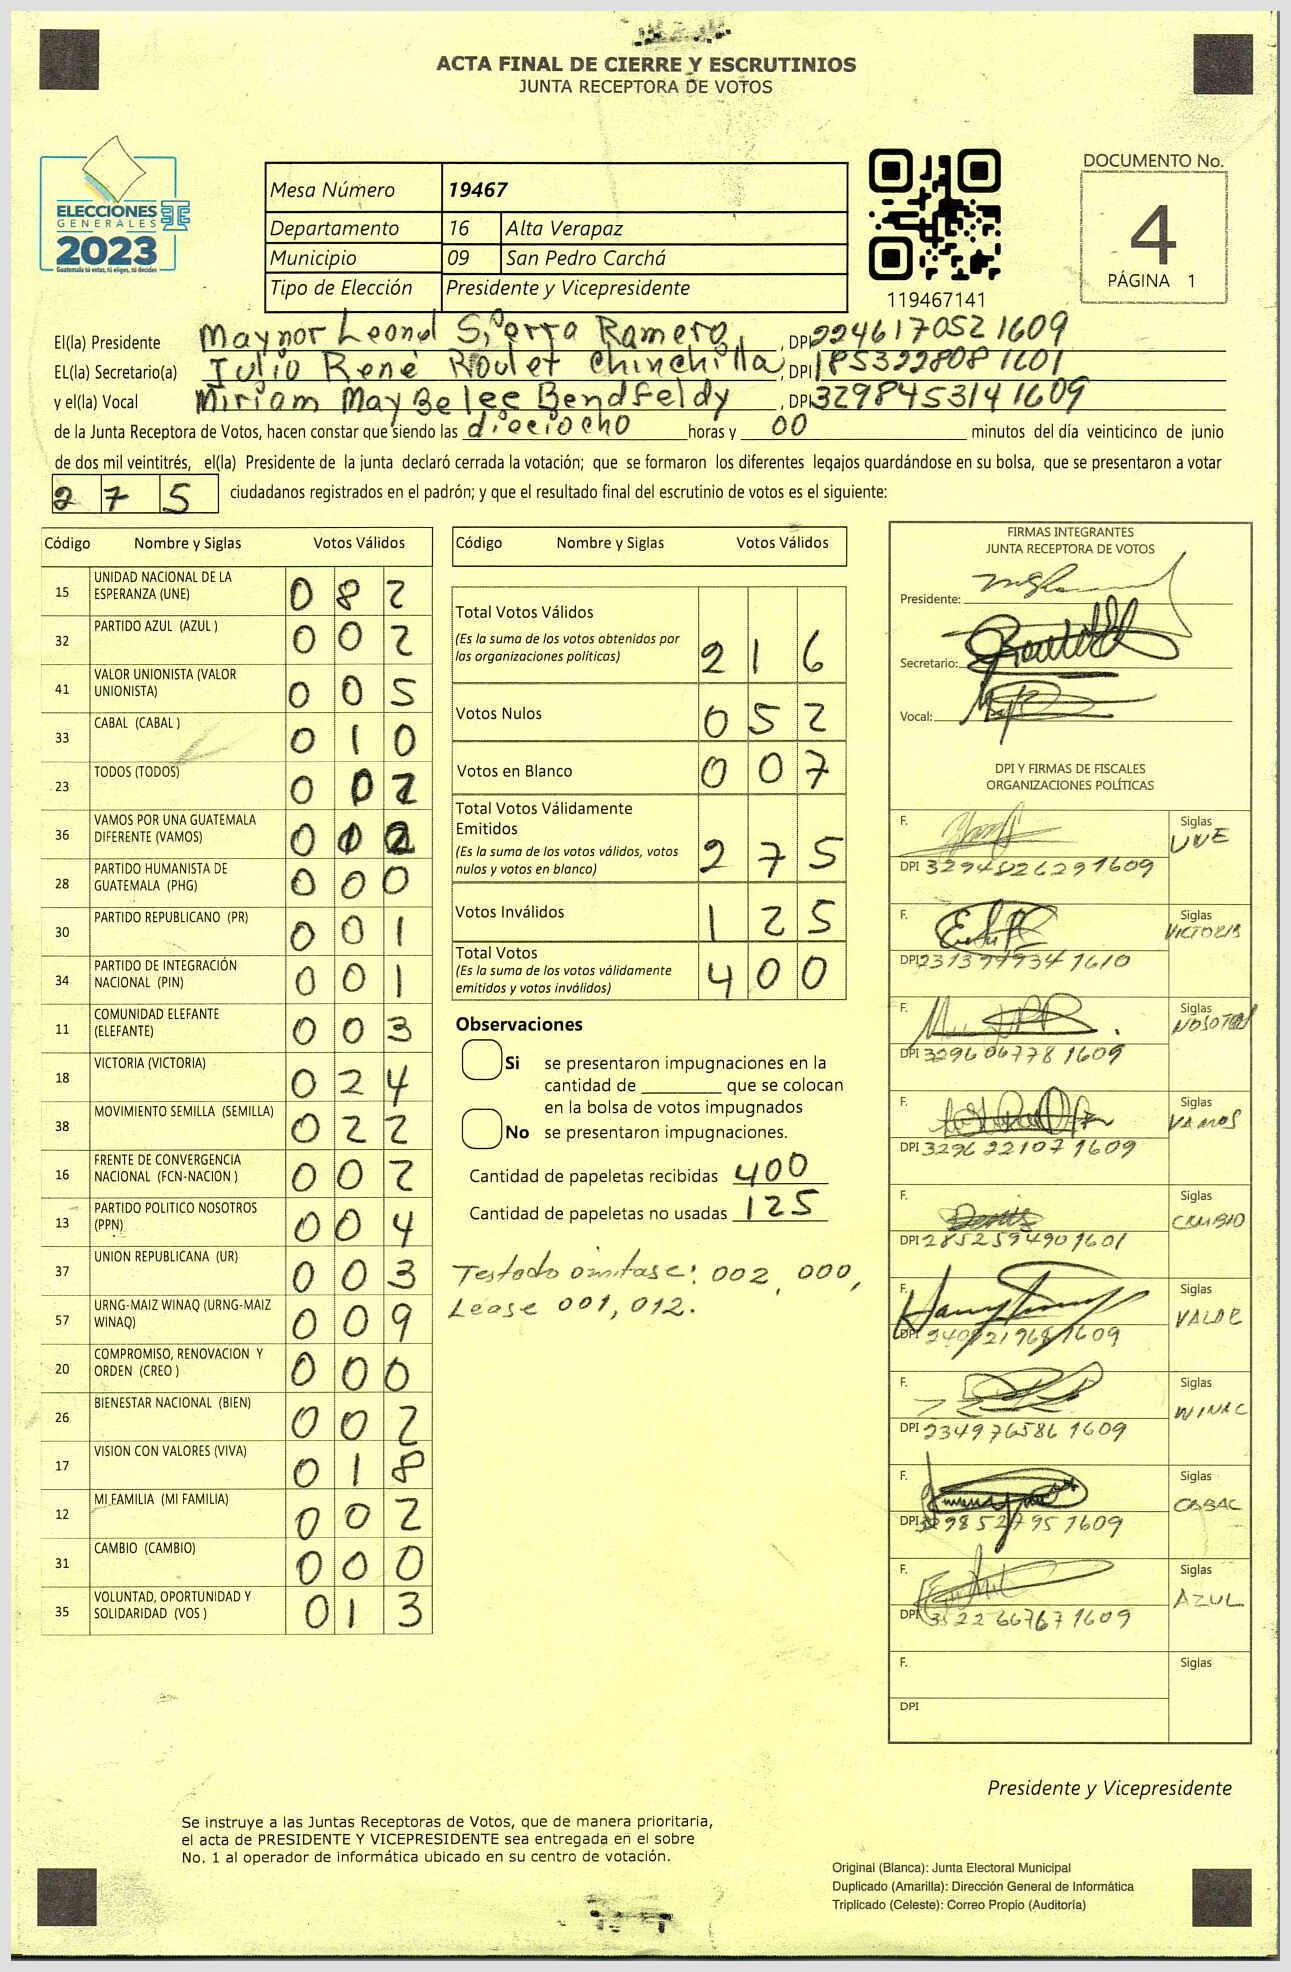 ACTA FINAL DE CIERRE Y ESCRUTINIOS
JUNTA RECEPTORA DE VOTOS
ELECCIONES
GENERALES
2023
Guatemala tú votas, tú eliges, tú decides
Mesa Número 19467
Departamento 16 Alta Verapaz
Municipio 09 San Pedro Carchá
Tipo de Elección Presidente y Vicepresidente
119467141
DOCUMENTO No.
4
PÁGINA 1
El(la) Presidente Maynor Leonel Sierra Ramero, DPI 2246170521609
EL(la) Secretario(a) Julio René Roulet Chinchilla, DPI 1853228081601
y el(la) Vocal Miriam Maybelee Bendfeldy, DPI 3298453141609
de la Junta Receptora de Votos, hacen constar que siendo las dieciocho horas y 00 minutos del día veinticinco de junio
de dos mil veintitrés, el(la) Presidente de la junta declaró cerrada la votación; que se formaron los diferentes legajos guardándose en su bolsa, que se presentaron a votar
2 7 5 ciudadanos registrados en el padrón; y que el resultado final del escrutinio de votos es el siguiente:
Código Nombre y Siglas Votos Válidos
15 UNIDAD NACIONAL DE LA ESPERANZA (UNE) 0 8 2
32 PARTIDO AZUL (AZUL ) 0 0 2
41 VALOR UNIONISTA (VALOR UNIONISTA) 0 0 5
33 CABAL (CABAL ) 0 1 0
23 TODOS (TODOS) 0 0 2
36 VAMOS POR UNA GUATEMALA DIFERENTE (VAMOS) 0 1 2
28 PARTIDO HUMANISTA DE GUATEMALA (PHG) 0 0 0
30 PARTIDO REPUBLICANO (PR) 0 0 1
34 PARTIDO DE INTEGRACIÓN NACIONAL (PIN) 0 0 1
11 COMUNIDAD ELEFANTE (ELEFANTE) 0 0 3
18 VICTORIA (VICTORIA) 0 2 4
38 MOVIMIENTO SEMILLA (SEMILLA) 0 2 2
16 FRENTE DE CONVERGENCIA NACIONAL (FCN-NACION ) 0 0 2
13 PARTIDO POLITICO NOSOTROS (PPN) 0 0 4
37 UNION REPUBLICANA (UR) 0 0 3
57 URNG-MAIZ WINAQ (URNG-MAIZ WINAQ) 0 0 9
20 COMPROMISO, RENOVACION Y ORDEN (CREO ) 0 0 0
26 BIENESTAR NACIONAL (BIEN) 0 0 2
17 VISION CON VALORES (VIVA) 0 1 8
12 MI FAMILIA (MI FAMILIA) 0 0 2
31 CAMBIO (CAMBIO) 0 0 0
35 VOLUNTAD, OPORTUNIDAD Y SOLIDARIDAD (VOS ) 0 1 3
Código Nombre y Siglas Votos Válidos
Total Votos Válidos
(Es la suma de los votos obtenidos por
las organizaciones políticas) 2 1 6
Votos Nulos 0 5 2
Votos en Blanco 0 0 7
Total Votos Válidamente
Emitidos
(Es la suma de los votos válidos, votos
nulos y votos en blanco) 2 7 5
Votos Inválidos 1 2 5
Total Votos
(Es la suma de los votos válidamente
emitidos y votos inválidos) 4 0 0
Observaciones
Si se presentaron impugnaciones en la
cantidad de ________ que se colocan
en la bolsa de votos impugnados
No se presentaron impugnaciones.
Cantidad de papeletas recibidas 400
Cantidad de papeletas no usadas 125
Testado omitase: 002, 000,
Lease 001, 012.
FIRMAS INTEGRANTES
JUNTA RECEPTORA DE VOTOS
Presidente:
Secretario:
Vocal:
DPI Y FIRMAS DE FISCALES
ORGANIZACIONES POLÍTICAS
F. Siglas UNE
DPI 3294826291609
F. Siglas VICTORIA
DPI 2313999341610
F. Siglas NOSOTROS
DPI 3296067781609
F. Siglas VAMOS
DPI 3296221071609
F. Siglas CAMBIO
DPI 2852594901601
F. Siglas VALOR
DPI 2409219681609
F. Siglas WINAC
DPI 2349765861609
F. Siglas CABAL
DPI 3298527951609
F. Siglas AZUL
DPI 3522667671609
F. Siglas
DPI
Presidente y Vicepresidente
Se instruye a las Juntas Receptoras de Votos, que de manera prioritaria,
el acta de PRESIDENTE Y VICEPRESIDENTE sea entregada en el sobre
No. 1 al operador de informática ubicado en su centro de votación.
Original (Blanca): Junta Electoral Municipal
Duplicado (Amarilla): Dirección General de Informática
Triplicado (Celeste): Correo Propio (Auditoría)